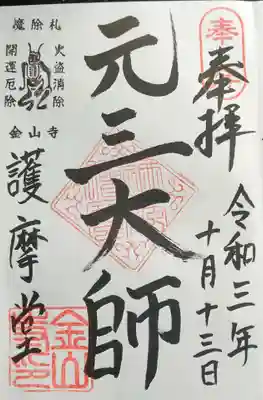 奉
奉拝
令和三年
十月十三日
元三大師
魔除札
火盗消除
開運厄除
金山寺
護摩堂
金山